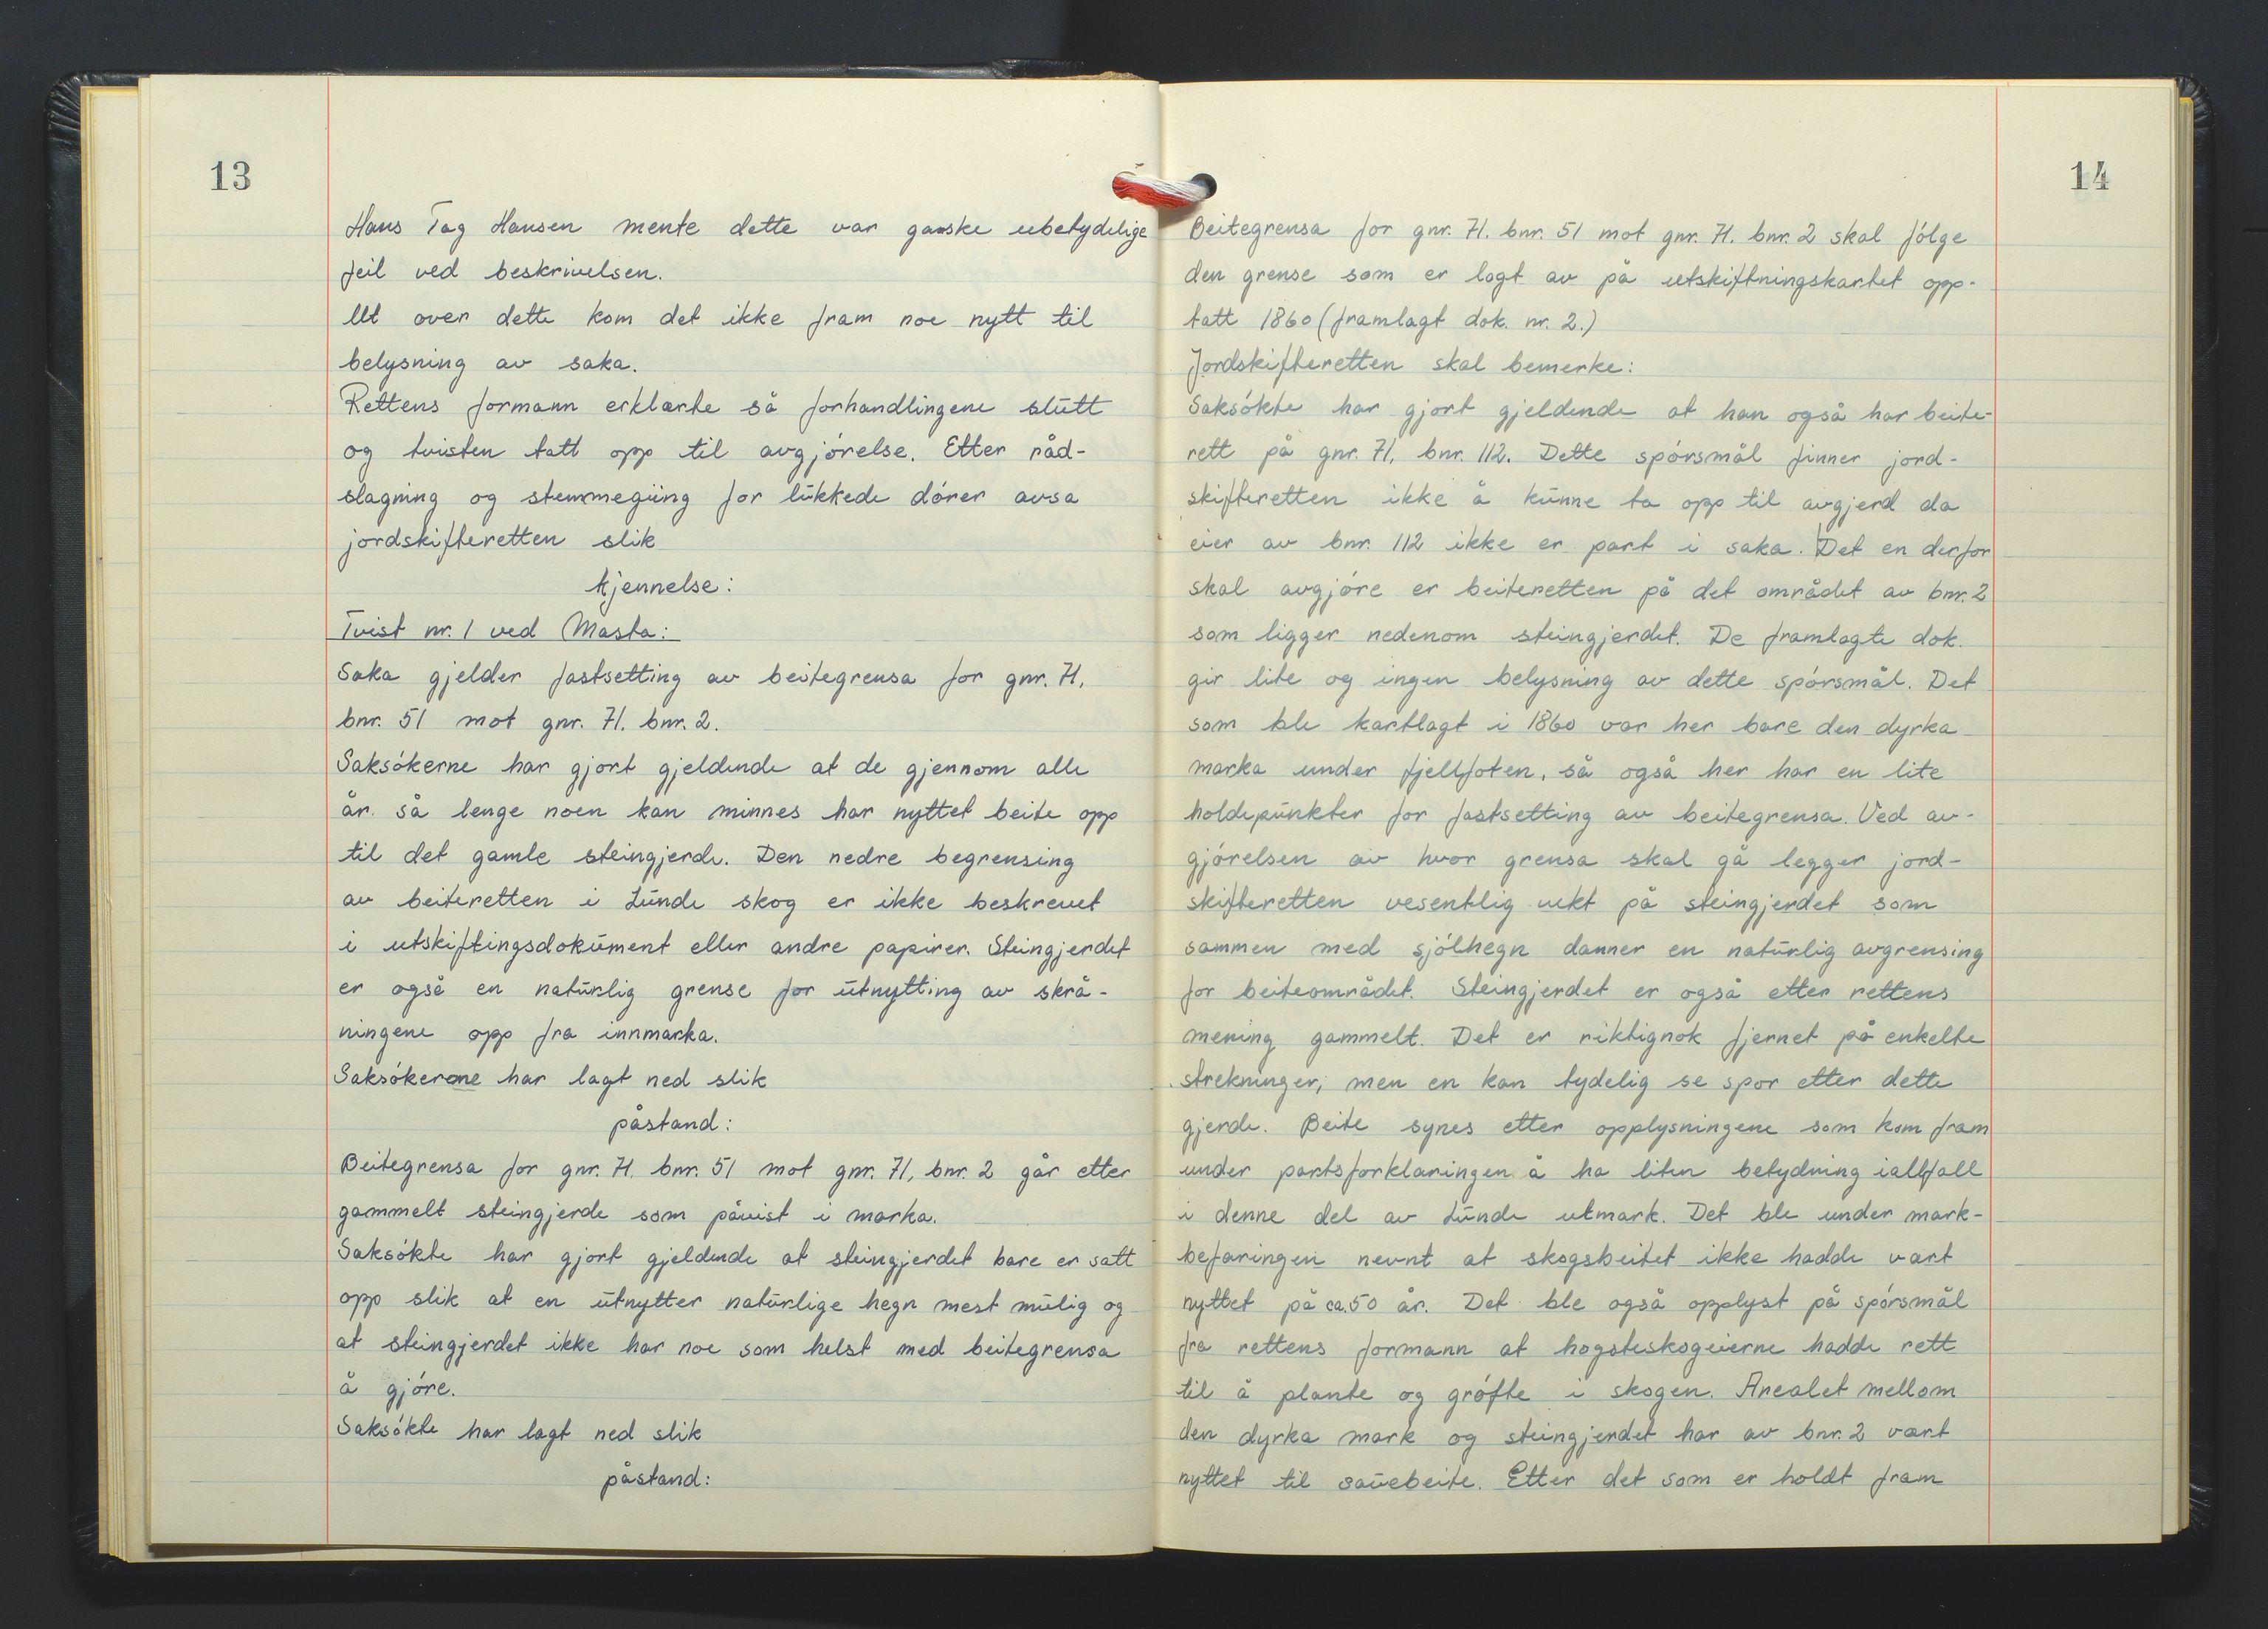 13
Hans Tag Hansen mente dette var ganske ubetydelige
feil ved beskrivelsen.
Ut over dette kom det ikke fram noe nytt til
belysning av saka.
Rettens formann erklærte så forhandlingene slutt
og tvisten tatt opp til avgjørelse. Etter råd-
slagning og stemmegiing for lukkede dører avsa
jordskifteretten slik
kjennelse:
Tvist nr. 1 ved Masta:
Saka gjelder fastsetting av beitegrensa for gnr. 71,
bnr. 51 mot gnr. 71. bnr. 2.
Saksøkerne har gjort gjeldende at de gjennom alle
år så lenge noen kan minnes har nyttet beite opp
til det gamle steingjerde. Den nedre begrensing
av beiteretten i Lunde skog er ikke beskrevet
i utskiftingsdokument eller andre papirer. Steingjerdet
er også en naturlig grense for utnytting av skrå-
ningene opp fra innmarka.
Saksøkerne har lagt ned slik
påstand:
Beitegrensa for gnr. 71. bnr. 51 mot gnr. 71, bnr. 2 går etter
gammelt steingjerde som påvist i marka.
Saksøkte har gjort gjeldende at steingjerdet bare er satt
opp slik at en utnytter naturlige hegn mest mulig og
at steingjerdet ikke har noe som helst med beitegrensa
å gjøre.
Saksøkte har lagt ned slik
påstand:
14
Beitegrensa for gnr. 71. bnr. 51 mot gnr. 71. bnr. 2 skal følge
den grense som er lagt av på utskiftningskartet opp-
tatt 1860 (framlagt dok. nr. 2.)
Jordskifteretten skal bemerke:
Saksøkte har gjort gjeldende at han også har beite-
rett på gnr. 71, bnr. 112. Dette spørsmål finner jord-
skifteretten ikke å kunne ta opp til avgjerd da
eier av bnr. 112 ikke er part i saka. Det en derfor
skal avgjøre er beiteretten på det området av bnr. 2
som ligger nedenom steingjerdet. De framlagte dok.
gir lite og ingen belysning av dette spørsmål. Det
som ble kartlagt i 1860 var her bare den dyrka
marka under fjellfoten, så også her har en lite
holdepunkter for fastsetting av beitegrensa. Ved av-
gjørelsen av hvor grensa skal gå legger jord-
skifteretten vesentlig vekt på steingjerdet som
sammen med sjølhegn danner en naturlig avgrensing
for beiteområdet. Steingjerdet er også etter rettens
mening gammelt. Det er riktignok fjernet på enkelte
strekninger, men en kan tydelig se spor etter dette
gjerde. Beite synes etter opplysningene som kom fram
under partsforklaringen å ha liten betydning iallfall
i denne del av Lunde utmark. Det ble under mark-
befaringen nevnt at skogsbeitet ikke hadde vært
nyttet på ca. 50 år. Det ble også opplyst på spørsmål
fra rettens formann at hogsteskogeierne hadde rett
til å plante og grøfte i skogen. Arealet mellom
den dyrka mark og steingjerdet har av bnr. 2 vært
nyttet til sauebeite. Etter det som er holdt fram